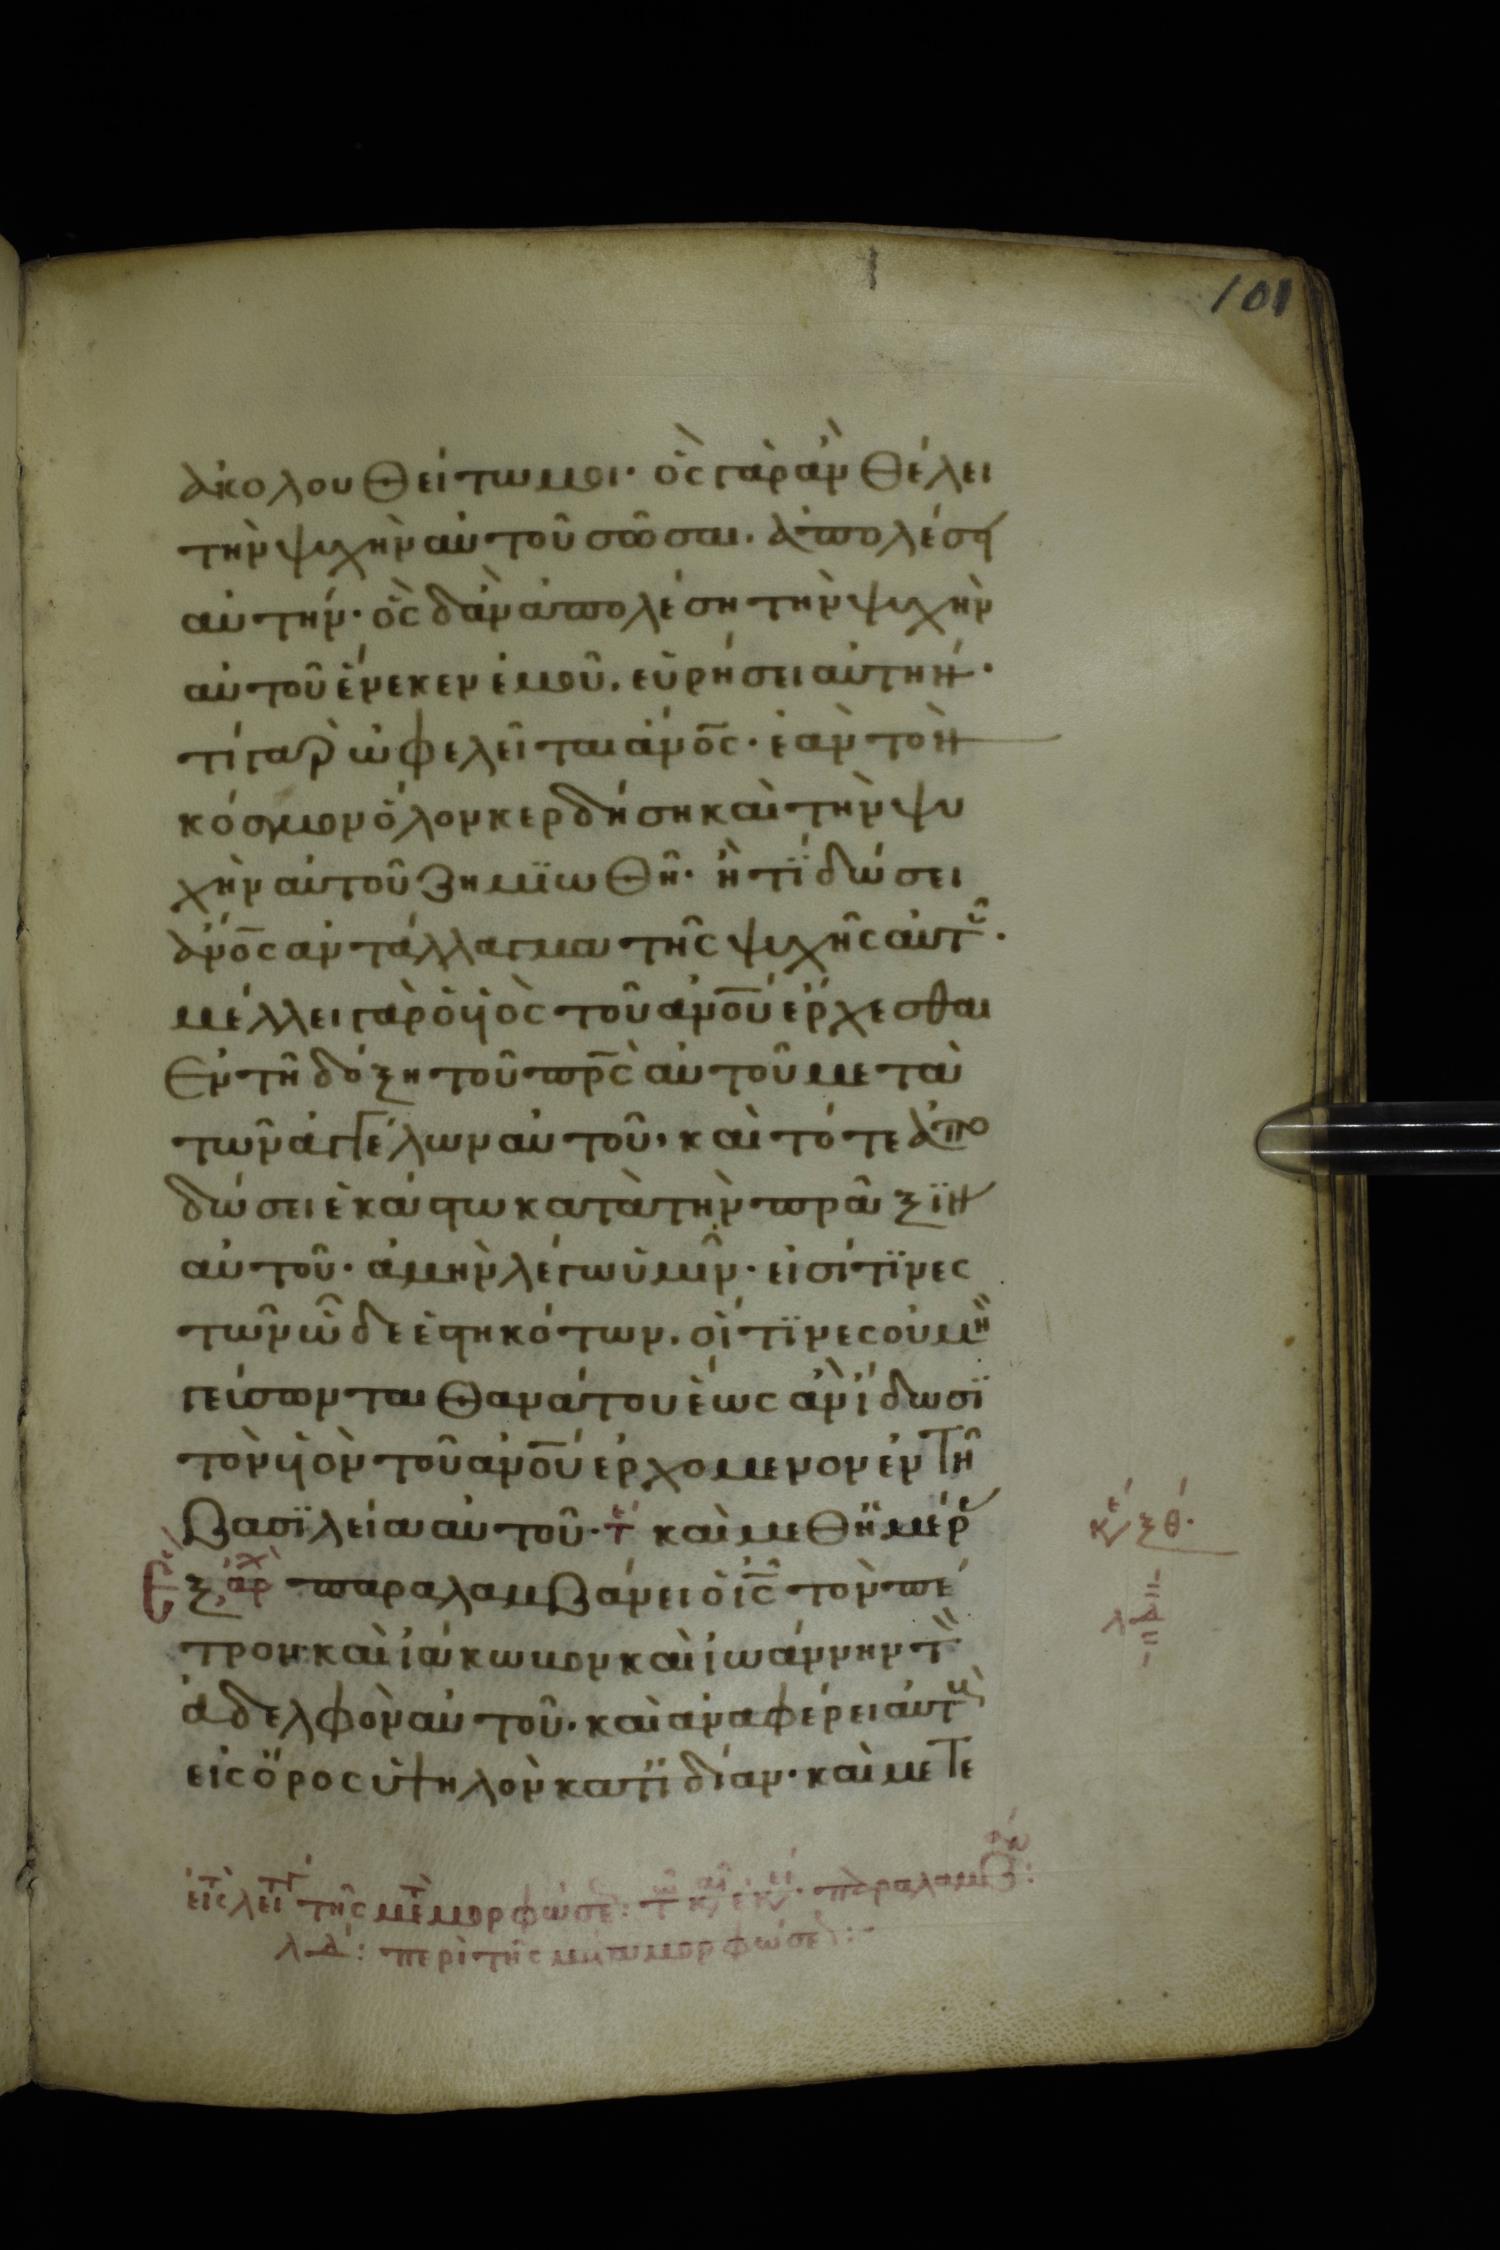 101
ἀκολουθείτω μοι· ὃς γὰρ ἂν θέλει
τὴν ψυχὴν αὐτοῦ σῶσαι. ἀπολέσει
αὐτήν· ὃς δἂν ἀπολέση τὴν ψυχὴν
αὐτοῦ ἕνεκεν ἐμοῦ. εὑρήσει αὐτήν·
τί γὰρ ὠφελεῖται ἄνο̅ς· ἐὰν τὸν
κόσμον ὅλον κερδήση καὶ τὴν ψυ
χὴν αὐτοῦ ζημϊωθῆ· ἢ τΐ δώσει
ἄνο̅ς ἀντάλλαγμα τῆς ψυχῆς αὐτοῦ·
μέλλει γὰρ ὁ υἱὸς τοῦ ἀνο̅ύ ἔρχεσθαι
Ἐν τῆ δόξη τοῦ πρ̅ς αὐτοῦ μετὰ
τῶν ἀγγέλων αὐτοῦ, καὶ τότε ἀπο
δώσει ἑκάστω κατὰ τὴν πρᾶξϊν
αὐτοῦ· ἀμὴν λέγω ὑμῖν· εἰσί τϊνες
τῶν ὧδε ἑστηκότων. οἵτϊνες οὐ μὴ
γεύσωνται θανάτου ἕως ἂν ἴδωσϊ
τὸν υἱὸν τοῦ ἀνο̅ύ ἐρχόμενον ἐν τῆ
Βασϊλεία αὐτοῦ· τέ καὶ μεθ ἡμέρ
Ἐξ ἀρχ παραλαμβάνει ὁ ι̅ς τὸν πέ
τρον· καὶ ἰάκωβον καὶ ἰωάννην τὸν
ἀδελφὸν αὐτοῦ· καὶ ἀναφέρει αὐτοὺς
εἰς ὄρος ὑψηλὸν κατϊδίαν· καὶ μετε
ξθ·
τῆς
παραλαμβ
λδ: περὶ τῆς μεταμορφώσε: